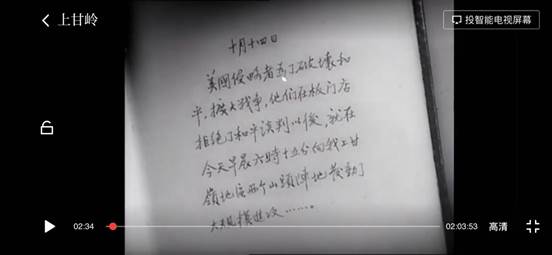 上甘岭
投智能电视屏幕
十月十四日
美國侵略者为了破壞和
平，擴大战争，他们在板门店
拒绝了和平谈判以後，就在
今天早晨六時十五分向我上甘
嶺地區两个山頭陣地發動了
大规模進攻……。
02:34
02:03:53
高清